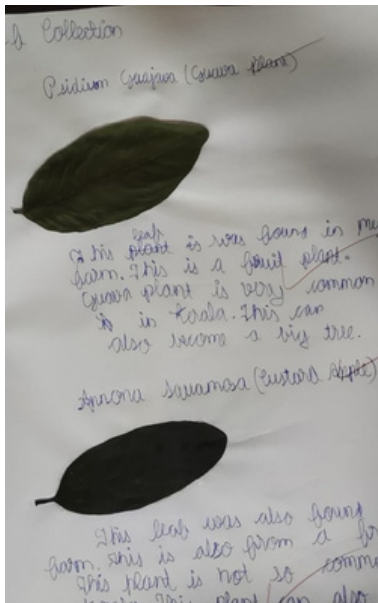 Collection
Psidium Guajava (Guava plant)
This leaf plant is was found in my
farm. This is a fruit plant.
Guava plant is very common
is in Kerala. This can
also become a big tree.
Annona Squamosa (Custard Apple)
This leaf was also found
farm. This is also from a
This plant is not so common
This plant can also